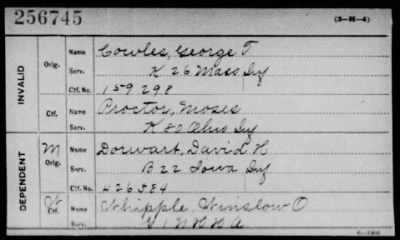 256745 (3-H-4)
INVALID
Orig. Name Cowles, George T
Serv. K 26 Mass Inf
Ctf. No. 159298
Ctf. Name Proctor, Moses
Serv. K 80 Ohio Inf
DEPENDENT
M Orig. Name Dorwart, David H
Serv. B 22 Iowa Inf
Ctf. No. 426584
W Ctf. Name Whipple, Winslow O
Serv. N H H A